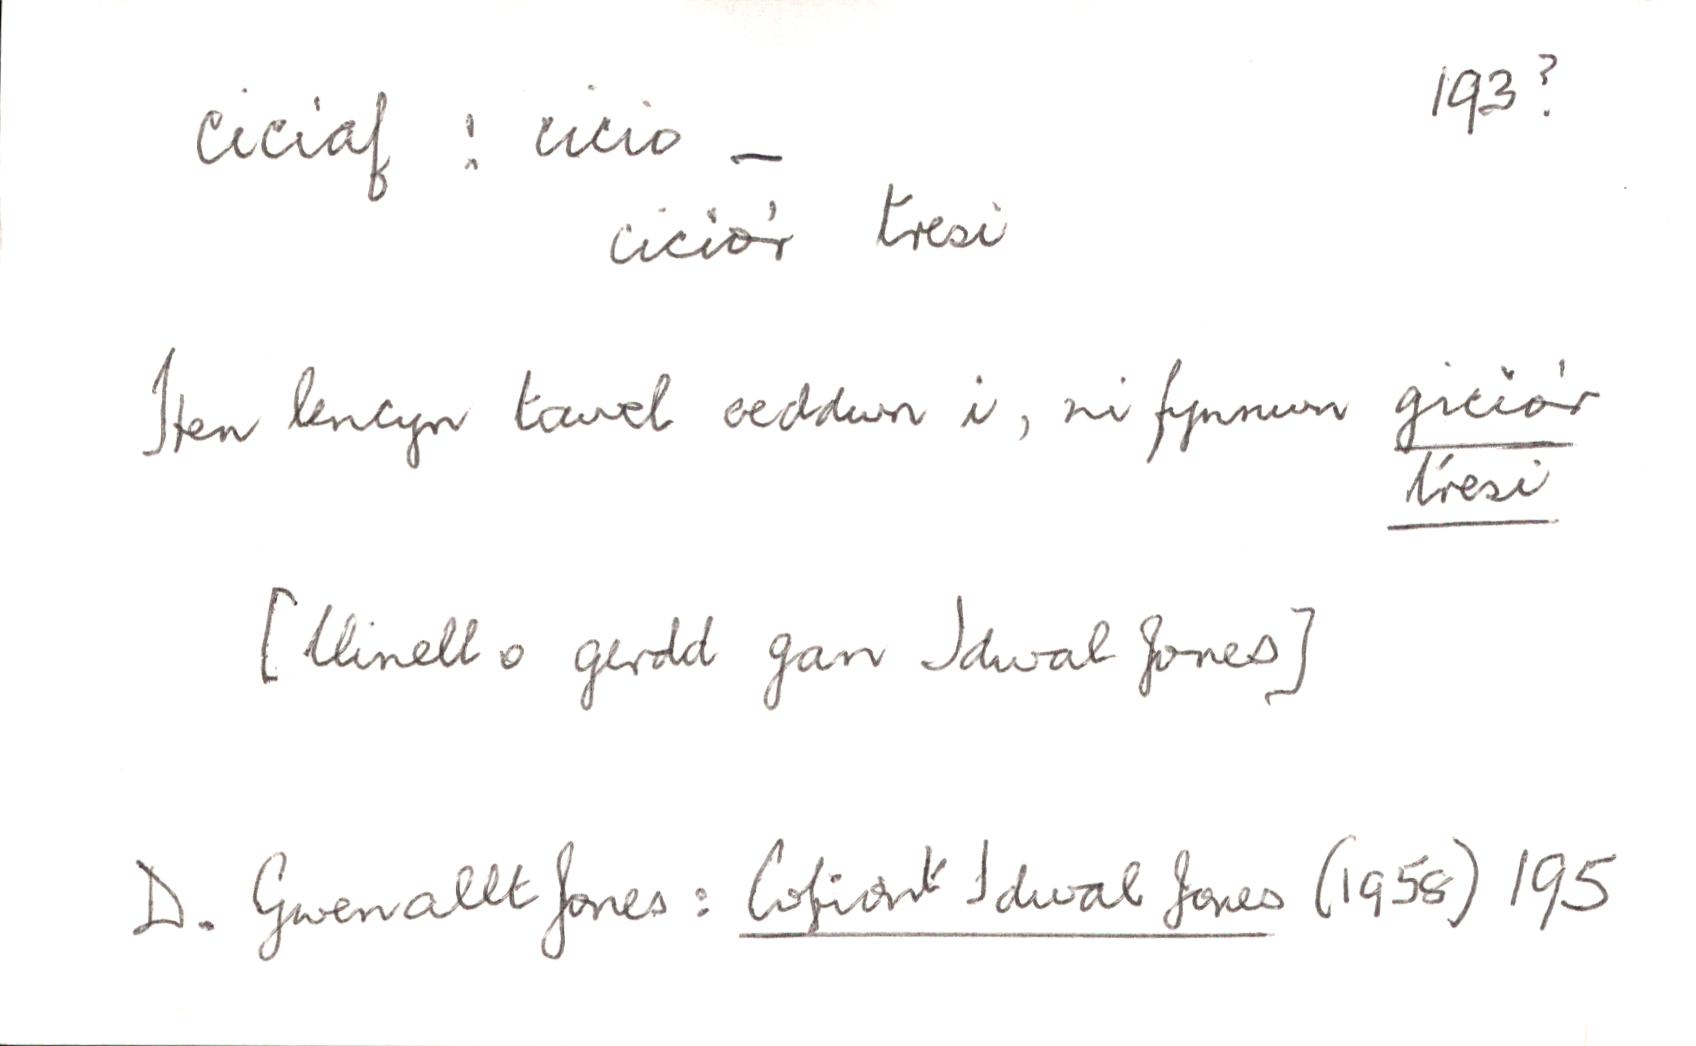 193?
ciciaf : cicio –
cicio'r tresi
Hen lencyn tawel oeddwn i, ni fynnwn gicio'r
tresi
[llinell o gerdd gan Idwal Jones]
D. Gwenallt Jones: Cofiant Idwal Jones (1958) 195